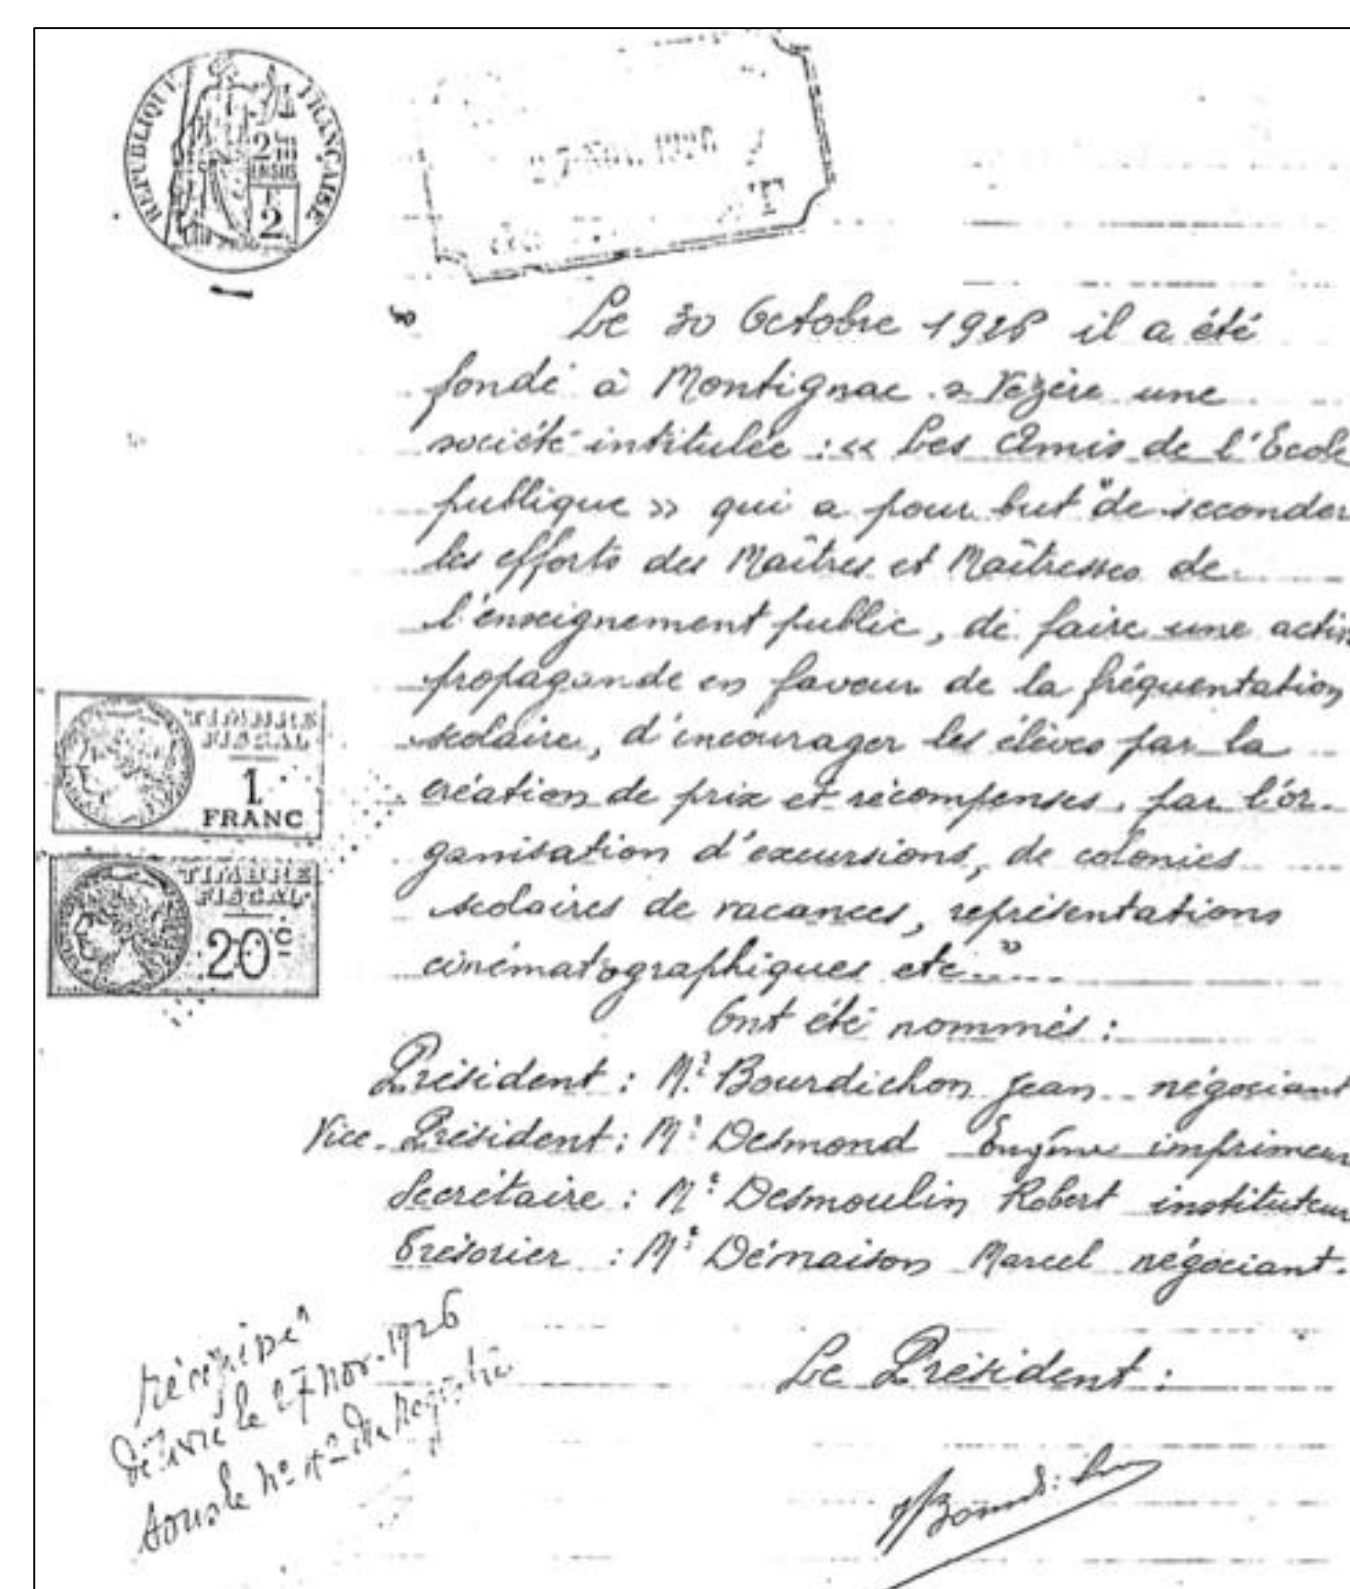 REPUBLIQUE FRANÇAISE
2
27 NOV. 1926
Le 30 Octobre 1926 il a été
fondé à Montignac s Vézère une
société intitulée : « Les Amis de l'Ecole
publique » qui a pour but "de seconder
les efforts des Maîtres et Maîtresses de
l'enseignement public, de faire une active
propagande en faveur de la fréquentation
scolaire, d'encourager les élèves par la
création de prix et récompenses, par l'or-
ganisation d'excursions, de colonies
scolaires de vacances, représentations
cinématographiques etc..."
TIMBRE
FISCAL
1
FRANC
TIMBRE
FISCAL
20c
Ont été nommés :
Président : Mr Bourdichon Jean négociant
Vice-Président : Mr Desmond Eugène imprimeur
Secrétaire : Mr Desmoulin Robert instituteur
Trésorier : Mr Démaison Marcel négociant.
récépissé
délivré le 27 nov. 1926
sous le no du Registre
Le Président :